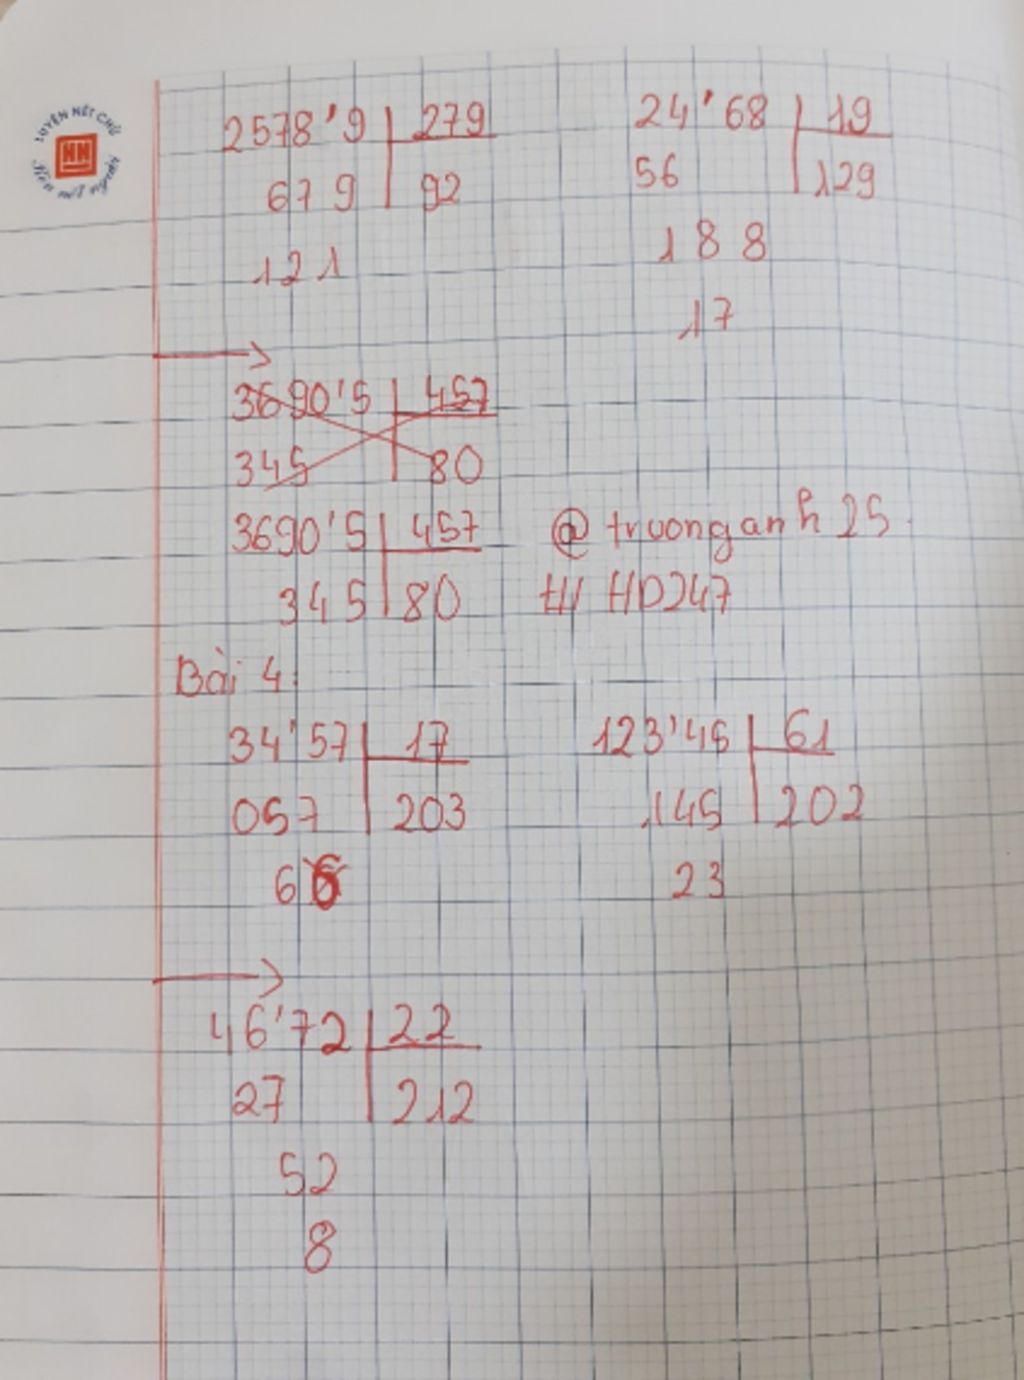 LUYỆN NÉT CHỮ
NN
Rèn nết người
2578'9 279
679 92
121
24'68 19
56 129
188
17
3690'5 457
345 80
3690'5 457
345 80
@truonganh25
trl HDJ47
Bài 4:
34'57 17
057 203
6
123'45 61
145 202
23
46'72 22
27 212
52
8